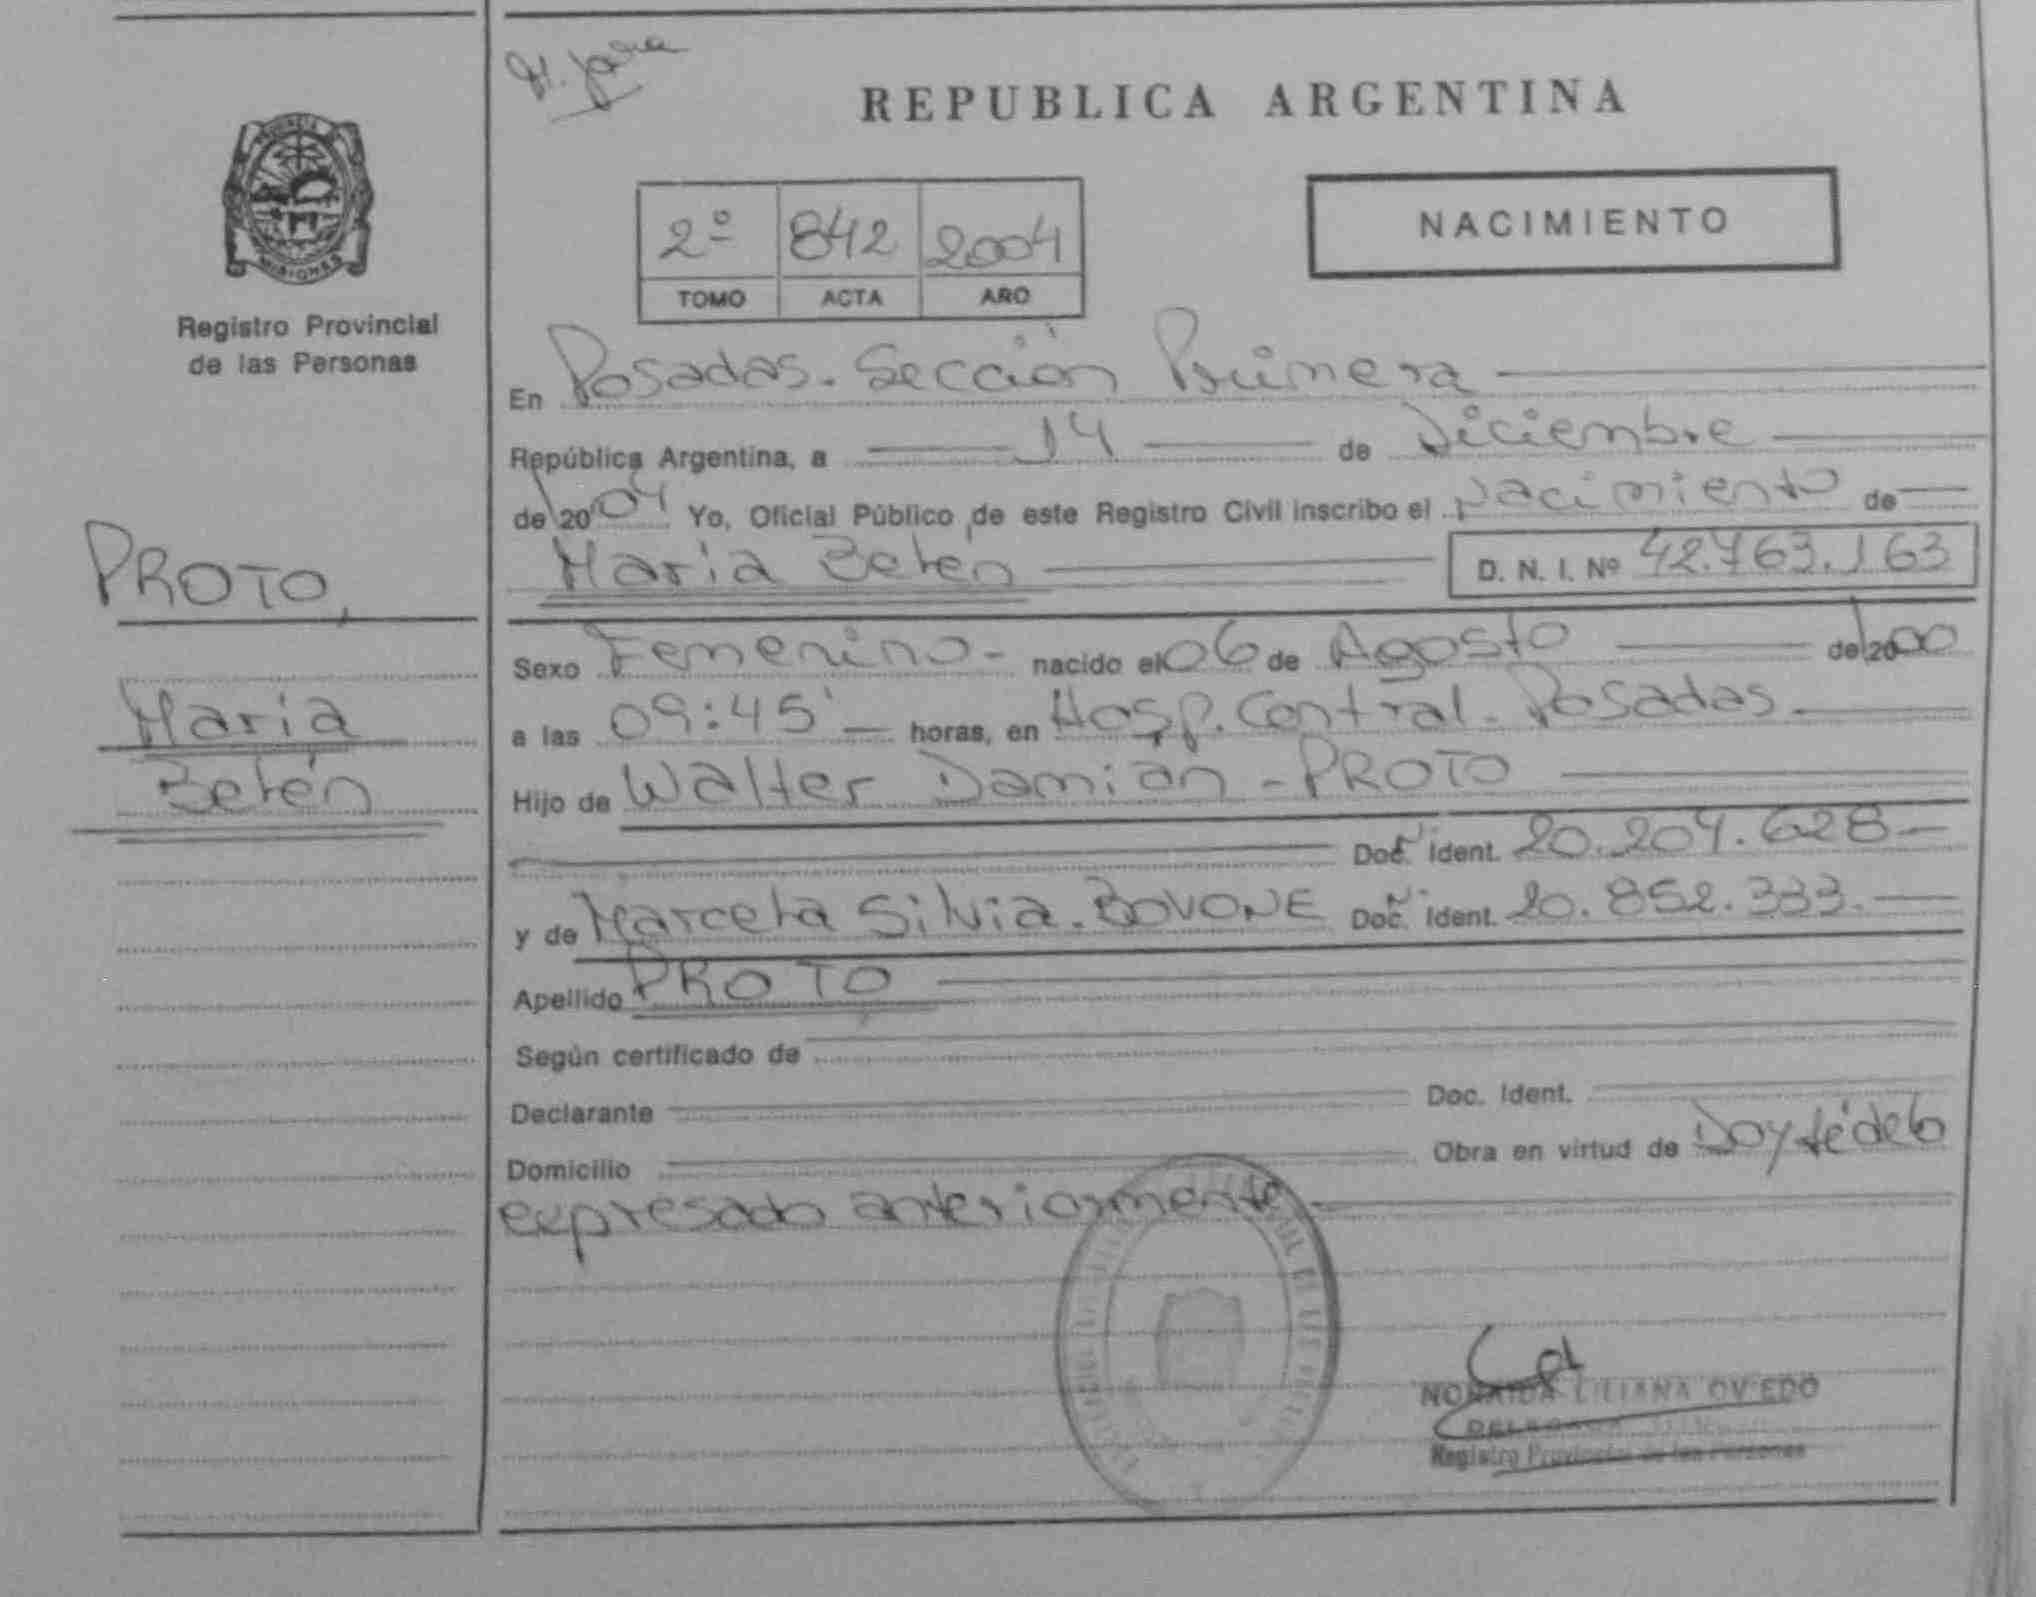 REPUBLICA ARGENTINA
MISIONES
Registro Provincial
de las Personas
2º 842 2004
TOMO ACTA AÑO
NACIMIENTO
En Posadas. Sección Primera
República Argentina, a 14 de Diciembre
de 2004 Yo, Oficial Público de este Registro Civil inscribo el Nacimiento de
María Belén D. N. I. Nº 42.763.163
PROTO,
María
Belén
Sexo Femenino- nacido el 06 de Agosto de 2000
a las 09:45' horas, en Hosp. Central. Posadas.
Hijo de Walter Damián - PROTO
Doc. Ident. 20.204.628
y de Marcela Silvia. BOVONE Doc. Ident. 20.852.333.
Apellido PROTO
Según certificado de
Declarante Doc. Ident.
Domicilio Obra en virtud de Doy fé de lo
expresado anteriormente
LILIANA OVIEDO
Registro Provincial de las Personas